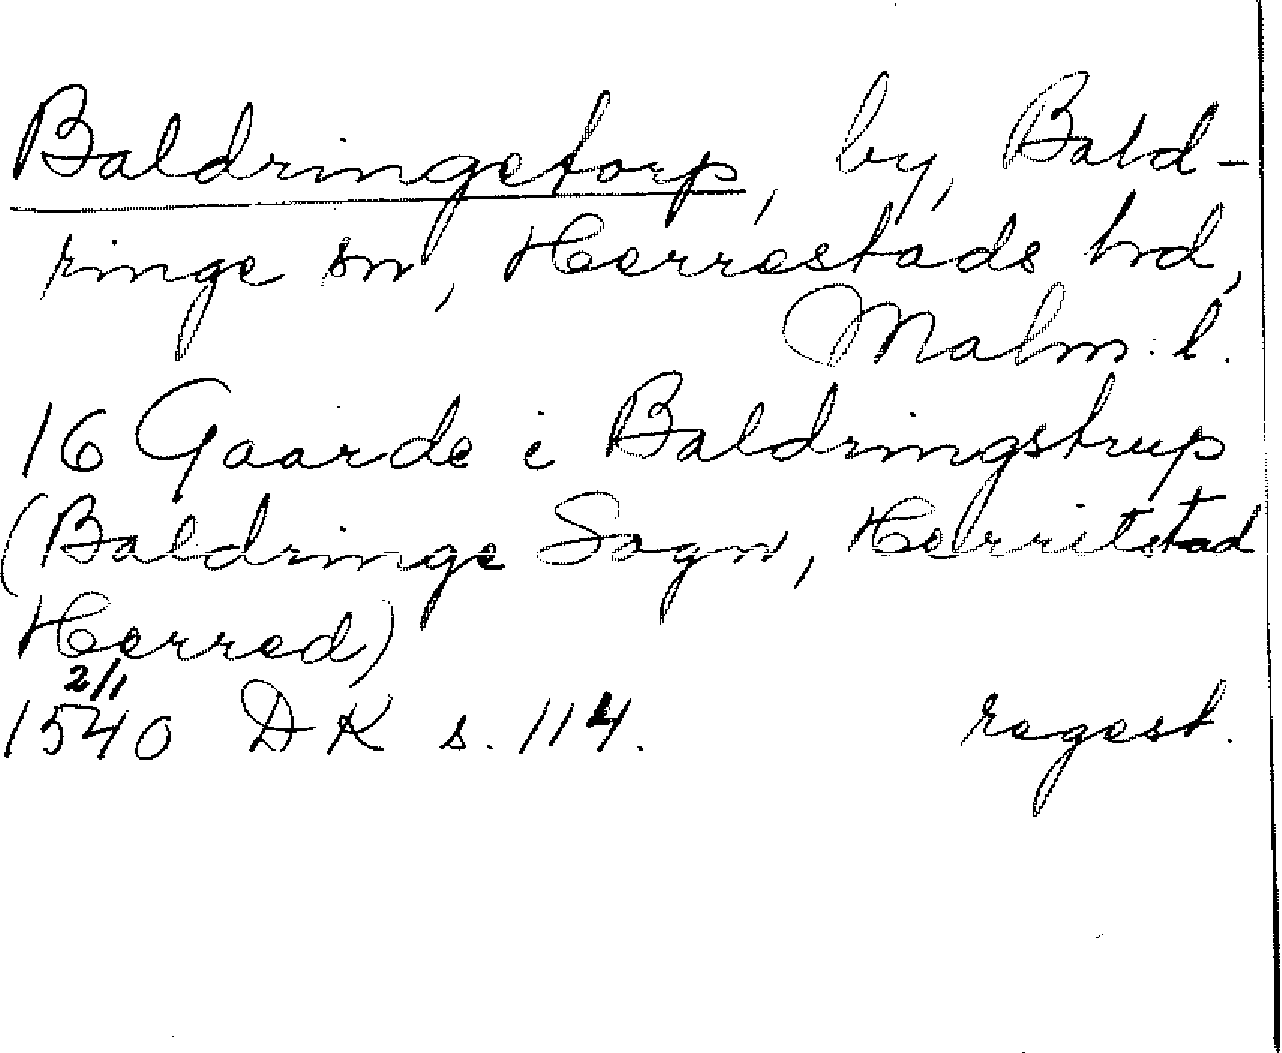 Baldringetorp, by, Bald-
ringe sn, Herrestads hrd,
Malm. l.
16 Gaarde i Baldringstrup
(Baldringe Sogn, Herritstad
Herred)
2/1
1540 DK s. 114. regest.